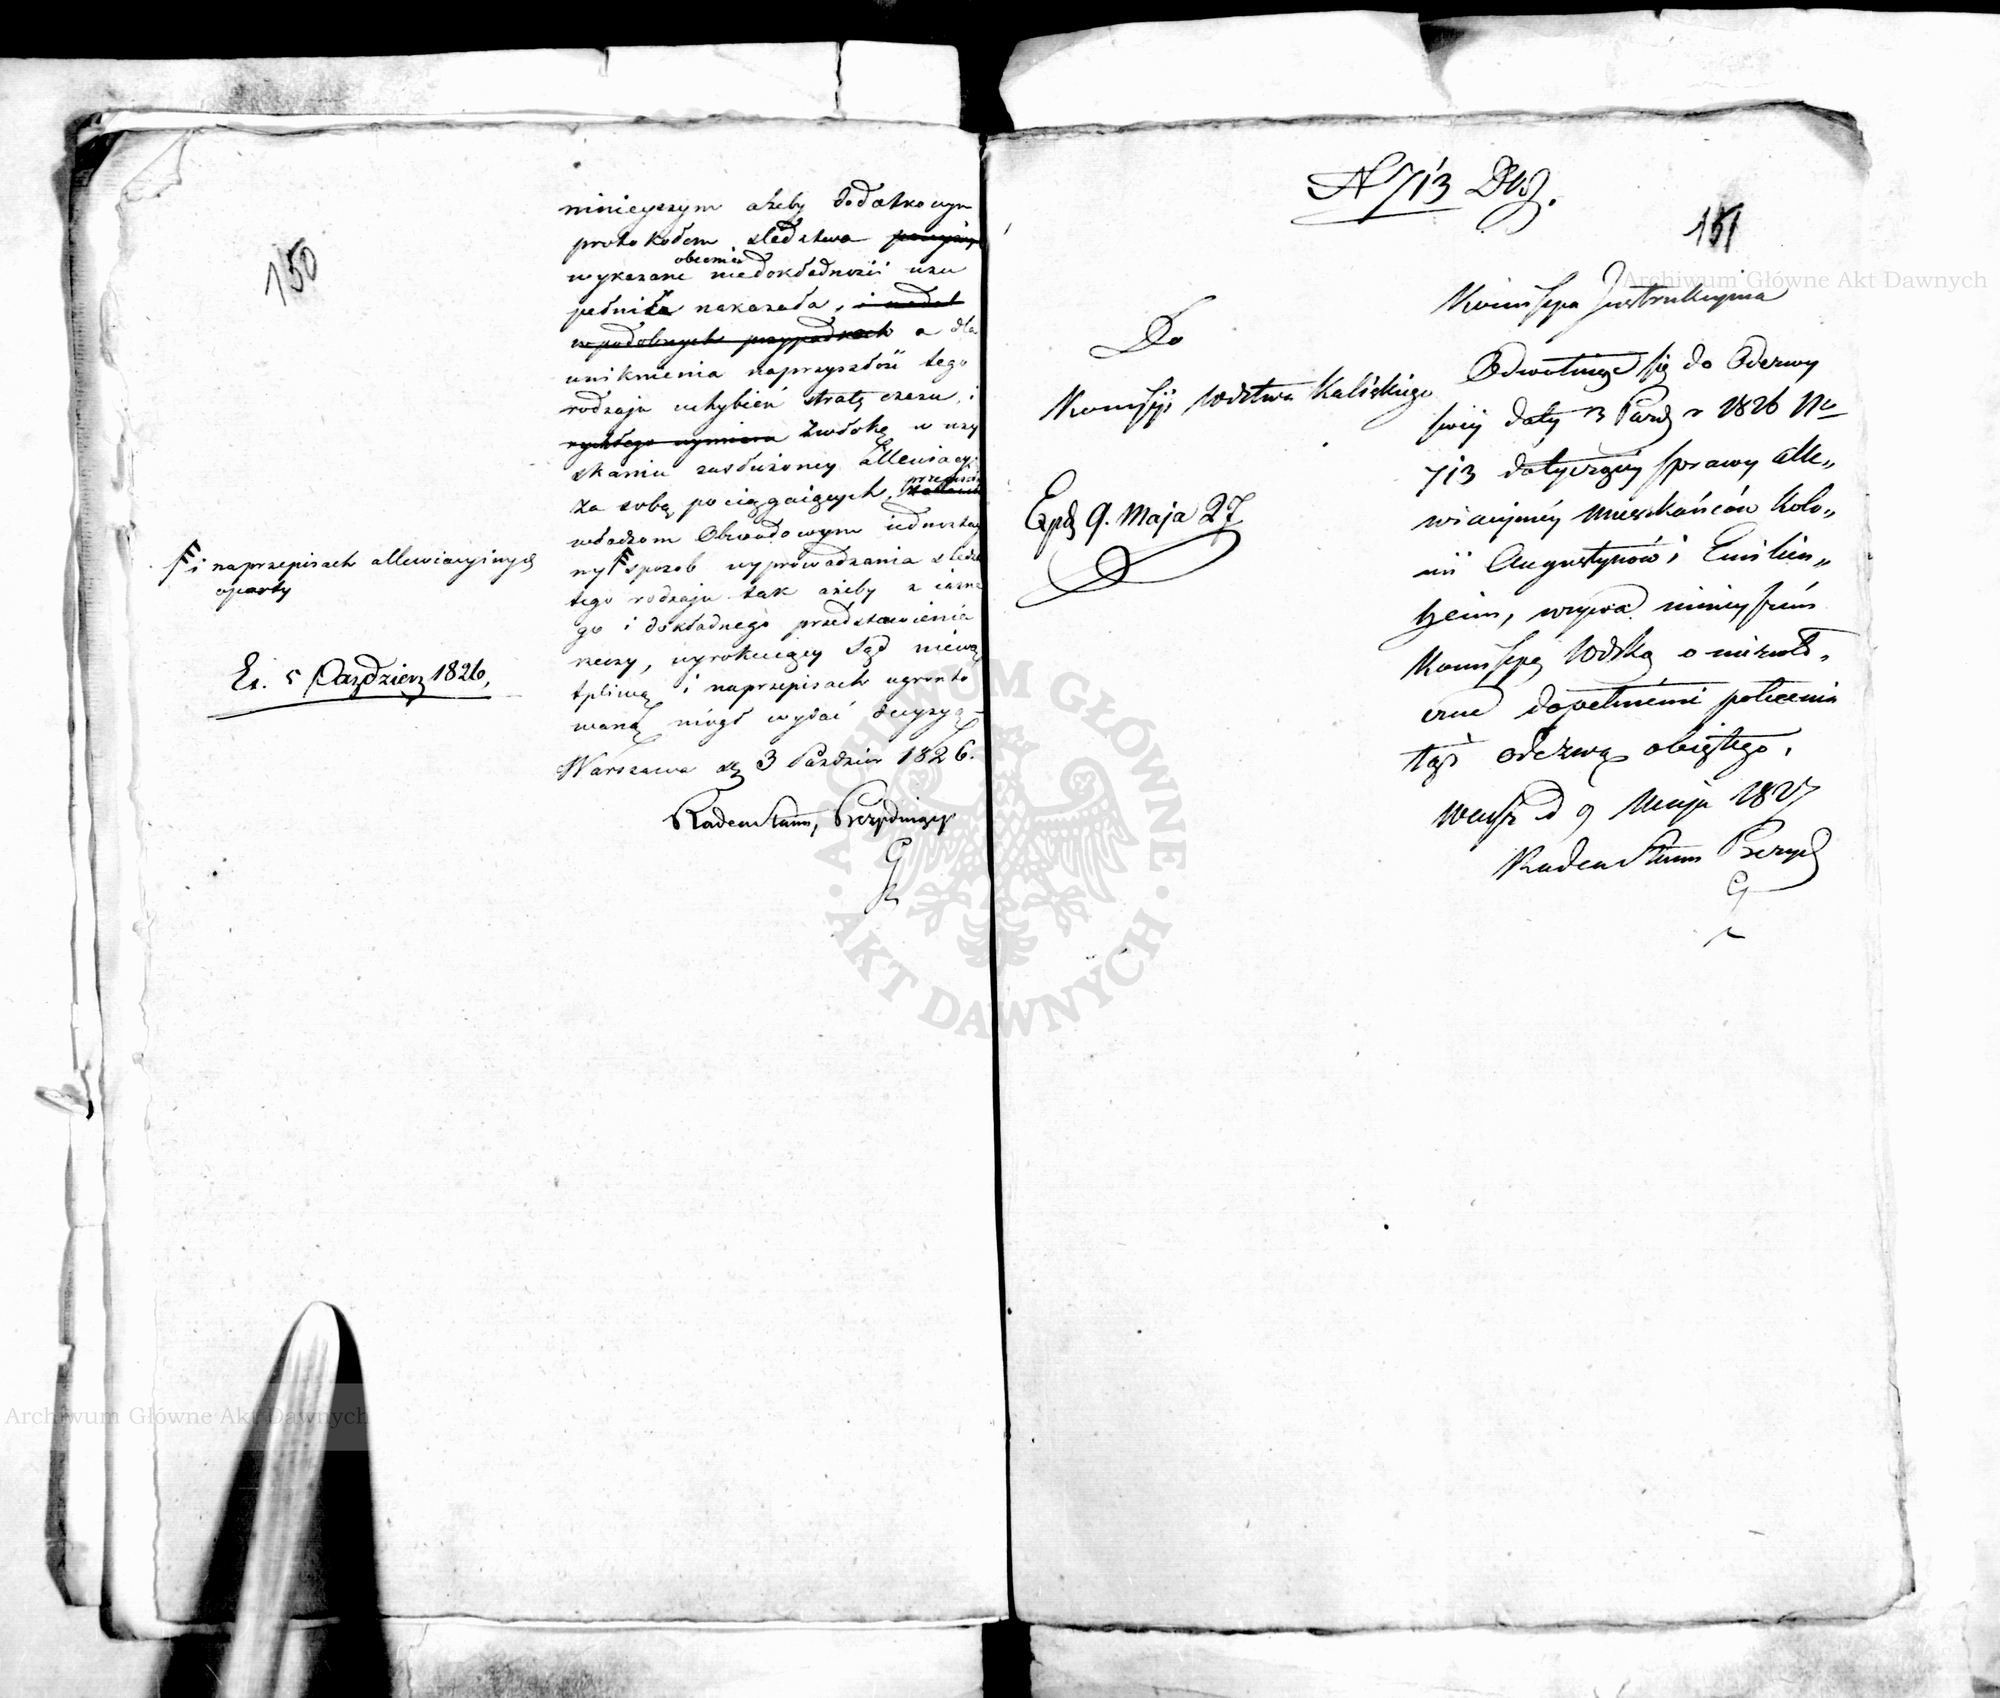 150
ninieyszym ażeby dodatkowym
protokołem śledztwa
obecnie
wykazane niedokładności uzu
pełniła nakazała, i nadal
w podobnych przypadkach a dla
uniknienia naprzyszłość tego
rodzaju uchybień stratę czasu, i
rychłego wymiaru zwłokę w uzy
skaniu zasłużoney allewiacyi
za sobą pociągaiących,
władzom Obwodowym iednostay
ny F sposób wyprowadzania śledztw
tego rodzaju tak ażeby z iasne
go i dokładnego przedstawienia
rzeczy, wyrokuiący Sąd niewą
tpliwą i naprzepisach ugrunto
waną mógł wydać decyzyą
Warszawa d. 3 Paździer 1826.
Radca Stanu, Prezyduiący
F i naprzepisach allewiacyinych
oparty
Ex. 5 Paździer 1826.
N 713
151
Kommissya Instrukcyina
Do
Kommissyi Wdztwa Kaliskiego
Exp. 9. Maja 27
Odwołuiąc się do Odezwy
swéy daty 3 Paźd r 1826 No
713 dotyczącey sprawy alle„
wiacyinéy mieszkańców Kolo„
nii Augustynów i Emilien„
heim, wzywa ninieyszém
Kommissyą Wdzką o niezwło„
czne dopełnienie polecenia
tąż odezwą obiętego.
Warsz d 9 Maja 1827
Radca Stanu Prezyd
Archiwum Główne Akt Dawnych
ARCHIWUM GŁÓWNE
AKT DAWNYCH
Archiwum Główne Akt Dawnych